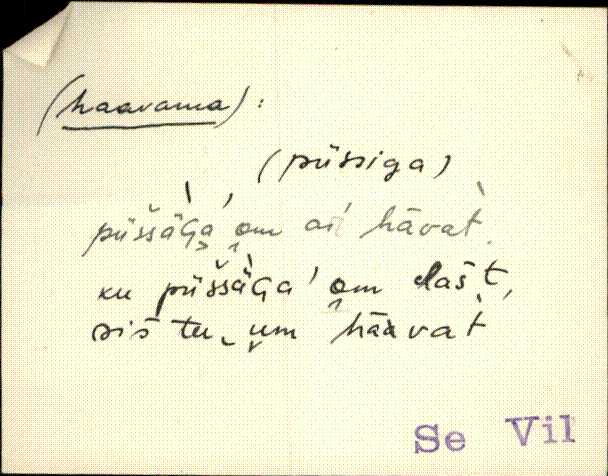 (haavama):
(püssiga)
püššäGa om hāvat.
ku püššäGa' om lašt,
siš tu um hāavat
Se Vil